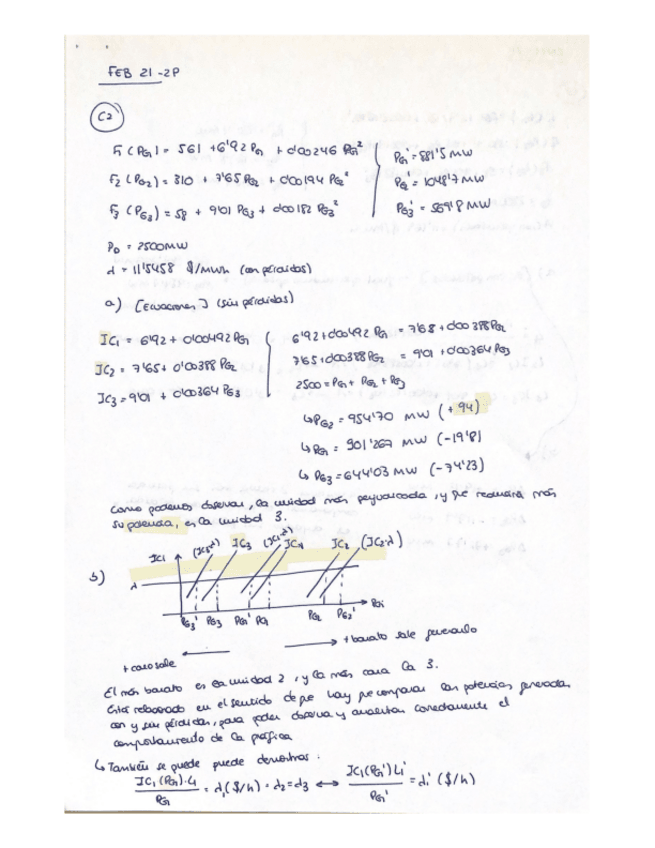 FEB 21 - 2P
C2
F1 (PG1) = 561 + 6'92 PG1 + 0'00246 PG1²
F2 (PG2) = 310 + 7'65 PG2 + 0'00194 PG2²
F3 (PG3) = 58 + 9'01 PG3 + 0'00182 PG3²
PG1' = 881'5 MW
PG2' = 1048'7 MW
PG3' = 569'8 MW
PD = 2500MW
λ = 11'5458 $/MWh (con pérdidas)
a) [Ecuaciones] (sin pérdidas)
IC1 = 6'92 + 0'00492 PG1
IC2 = 7'65 + 0'00388 PG2
IC3 = 9'01 + 0'00364 PG3
6'92 + 0'00492 PG1 = 7'65 + 0'00388 PG2
7'65 + 0'00388 PG2 = 9'01 + 0'00364 PG3
2500 = PG1 + PG2 + PG3
↳ PG2 = 954'70 MW (+ 94)
↳ PG1 = 901'267 MW (-19'8)
↳ PG3 = 644'03 MW (-74'23)
Como podemos observar, la unidad más perjudicada, y que reducirá más
su potencia, es la unidad 3.
b)
ICi (IC3·λ) IC3 (IC1·λ) IC1 IC2 (IC2·λ)
λ
PG3' PG3 PG1' PG1 PG2 PG2' PGi
+ caro sale
+ barato sale generarlo
El más barato es la unidad 2, y la más cara la 3.
Está relacionado en el sentido de que hay que comparar las potencias generadas
con y sin pérdidas, para poder observar y analizar correctamente el
comportamiento de la gráfica
↳ También se puede puede demostrar:
IC1(PG1)·L1 / PG1 = λ1 ($/h) = λ2 = λ3 ⟷ IC1(PG1')L1' / PG1' = λi' ($/h)